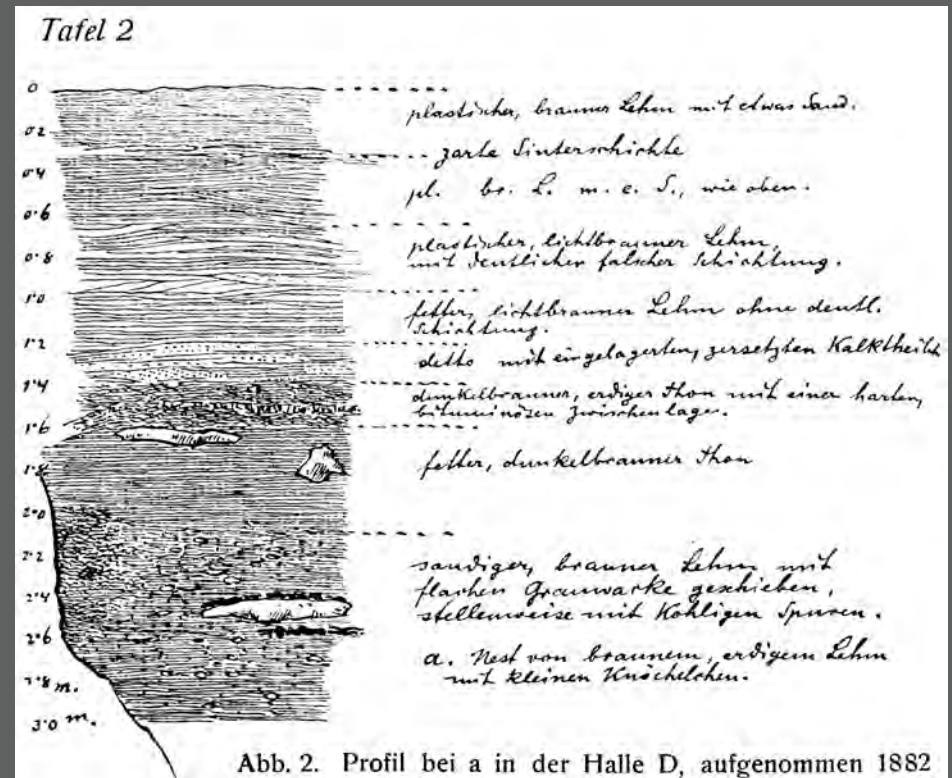 Tafel 2
0
0·2
0·4
0·6
0·8
1·0
1·2
1·4
1·6
1·8
2·0
2·2
2·4
2·6
2·8 m.
3·0 m.
plastischer, brauner Lehm mit etwas Sand.
zarte Sinterschichte
pl. br. L. m. e. S., wie oben.
plastischer, lichtbrauner Lehm,
mit deutlicher falscher Schichtung.
fetter, lichtbrauner Lehm ohne deutl.
Schichtung.
detto mit eingelagerten, zersetzten Kalktheilch
dunkelbrauner, erdiger Thon mit einer harten,
bituminösen Zwischenlage.
fetter, dunkelbrauner Thon
sandiger, brauner Lehm mit
flachen Grauwacke geschieben,
stellenweise mit Kohligen Spuren.
a. Nest von braunem, erdigem Lehm
mit kleinen Knöchelchen.
Abb. 2. Profil bei a in der Halle D, aufgenommen 1882